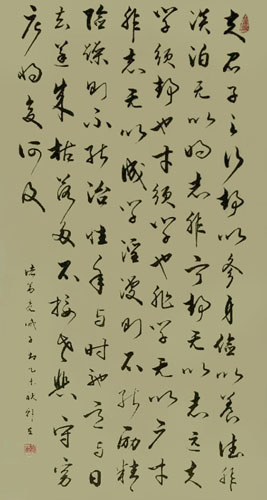 夫君子之行静以修身俭以养德非
淡泊无以明志非宁静无以致远夫
学须静也才须学也非学无以广才
非志无以成学淫漫则不能励精
险躁则不能治性年与时驰意与日
去遂成枯落多不接世悲守穷
庐将复何及
诸葛亮诫子书乙未秋